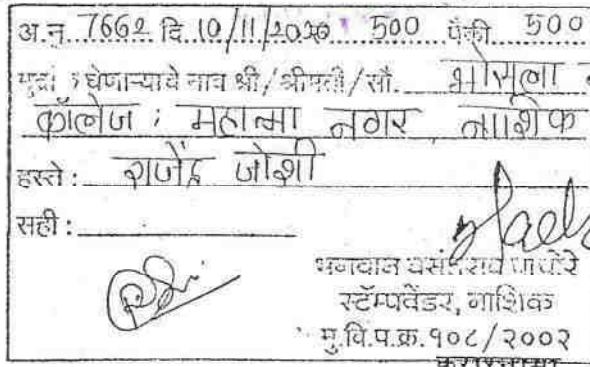 अ.नं. 7662 दि 10/11/2020 500 पैकी 500
घेणाऱ्याचे नाव श्री/श्रीमती/सौ. भोसला
कॉलेज : महात्मा नगर नाशिक
हस्ते : राजेंद्र जोशी
सही :
भगवान वसंतराव
स्टॅम्पवेंडर, नाशिक
मु.वि.प.क्र. १०८/२००२
करारनामा